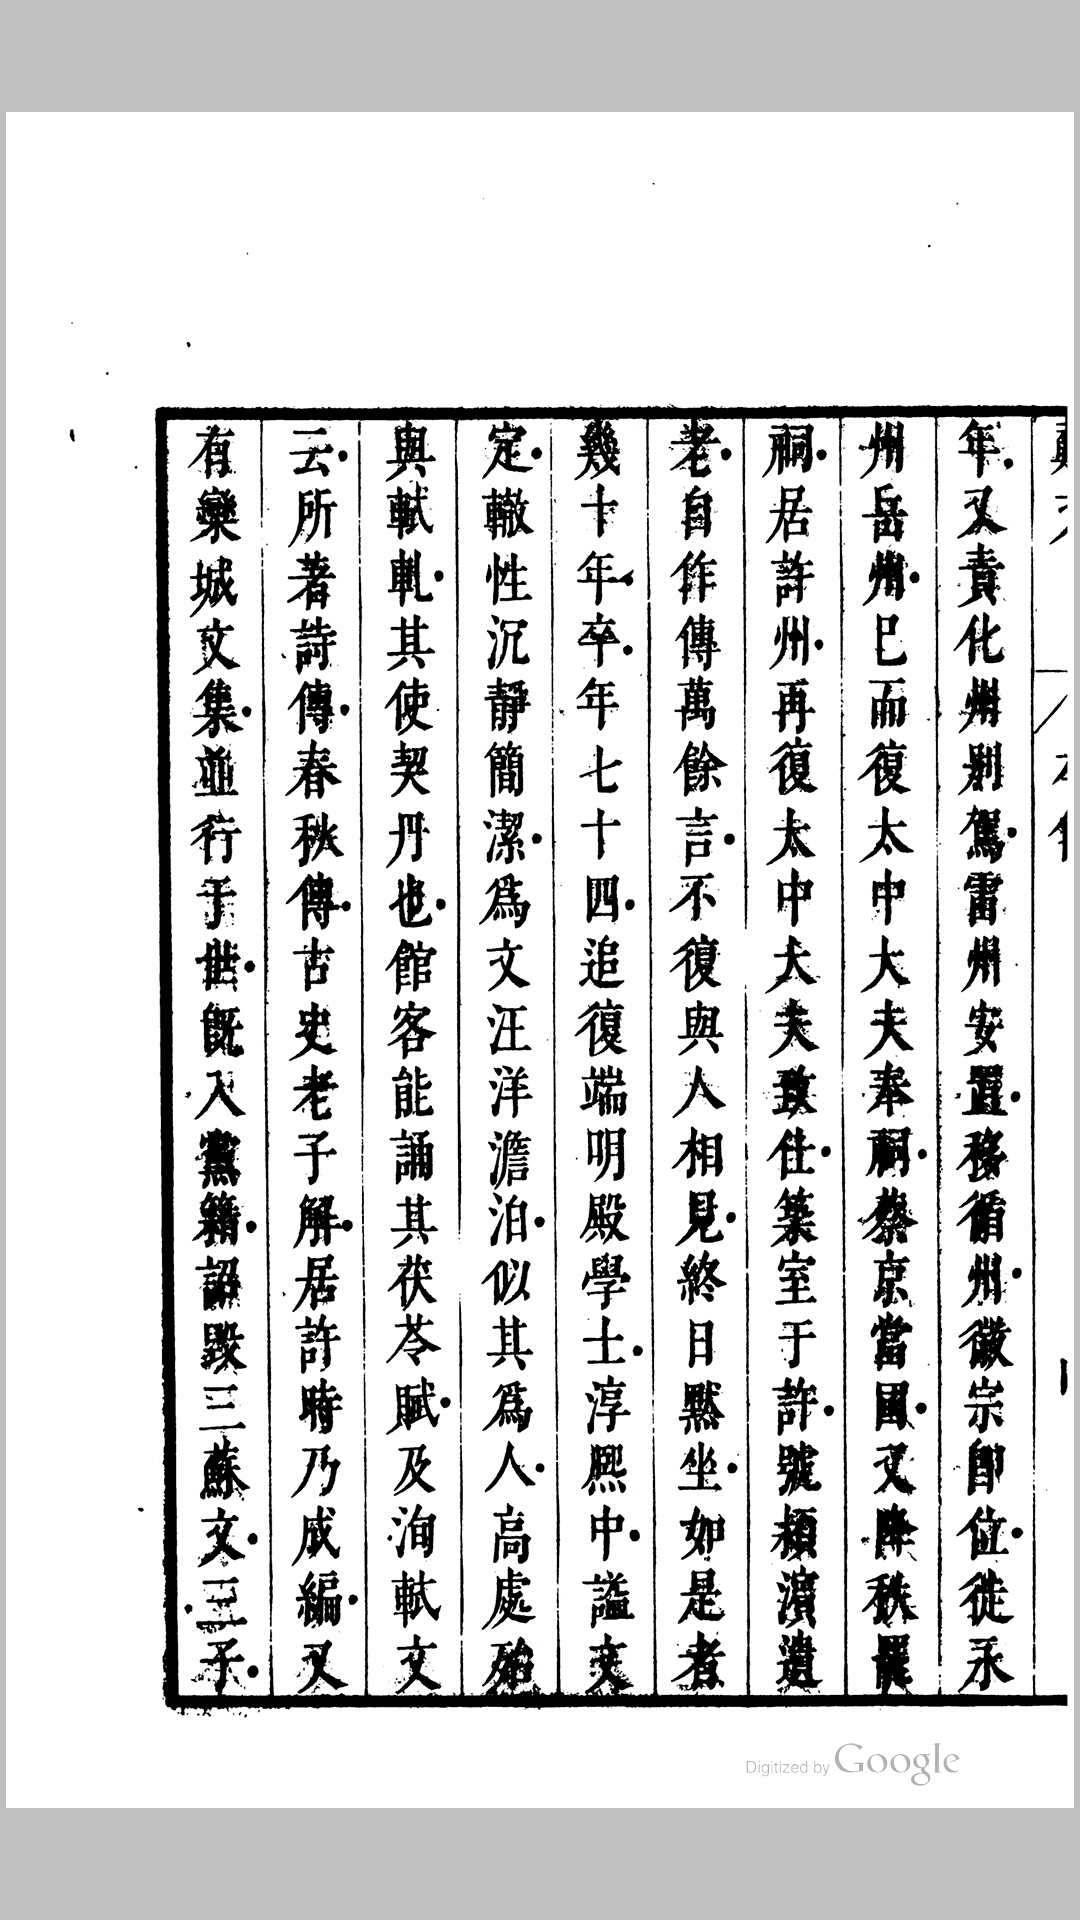 年又責化州别駕雷州安置移循州徽宗即位徙永
州岳州巳而復太中大夫奉祠蔡京當國又降秩罷
祠居許州再復太中大夫致仕築室于許號潁濱遺
老自作傳萬餘言不復與人相見終日黙坐如是者
幾十年卒年七十四追復端明殿學士淳熙中謚文
定轍性沉靜簡潔爲文汪洋澹泊似其爲人高處殆
與軾軋其使契丹也館客能誦其茯苓賦及洵軾文
云所著詩傳春秋傳古史老子解居許時乃成編又
有欒城文集並行于世旣入黨籍詔毀三蘇文三子
Digitized by Google